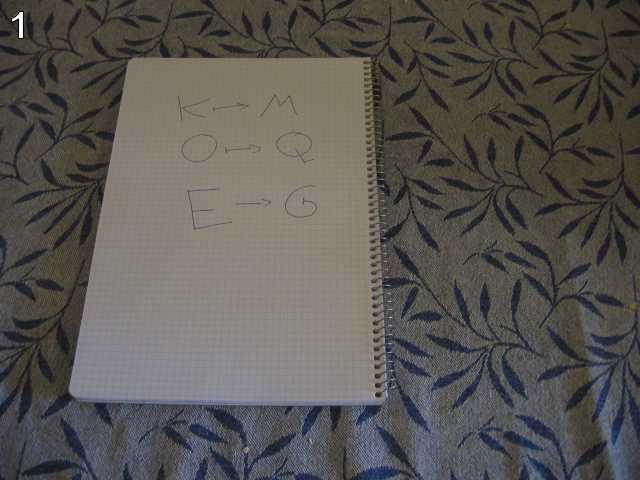 1
K → M
O → Q
E → G